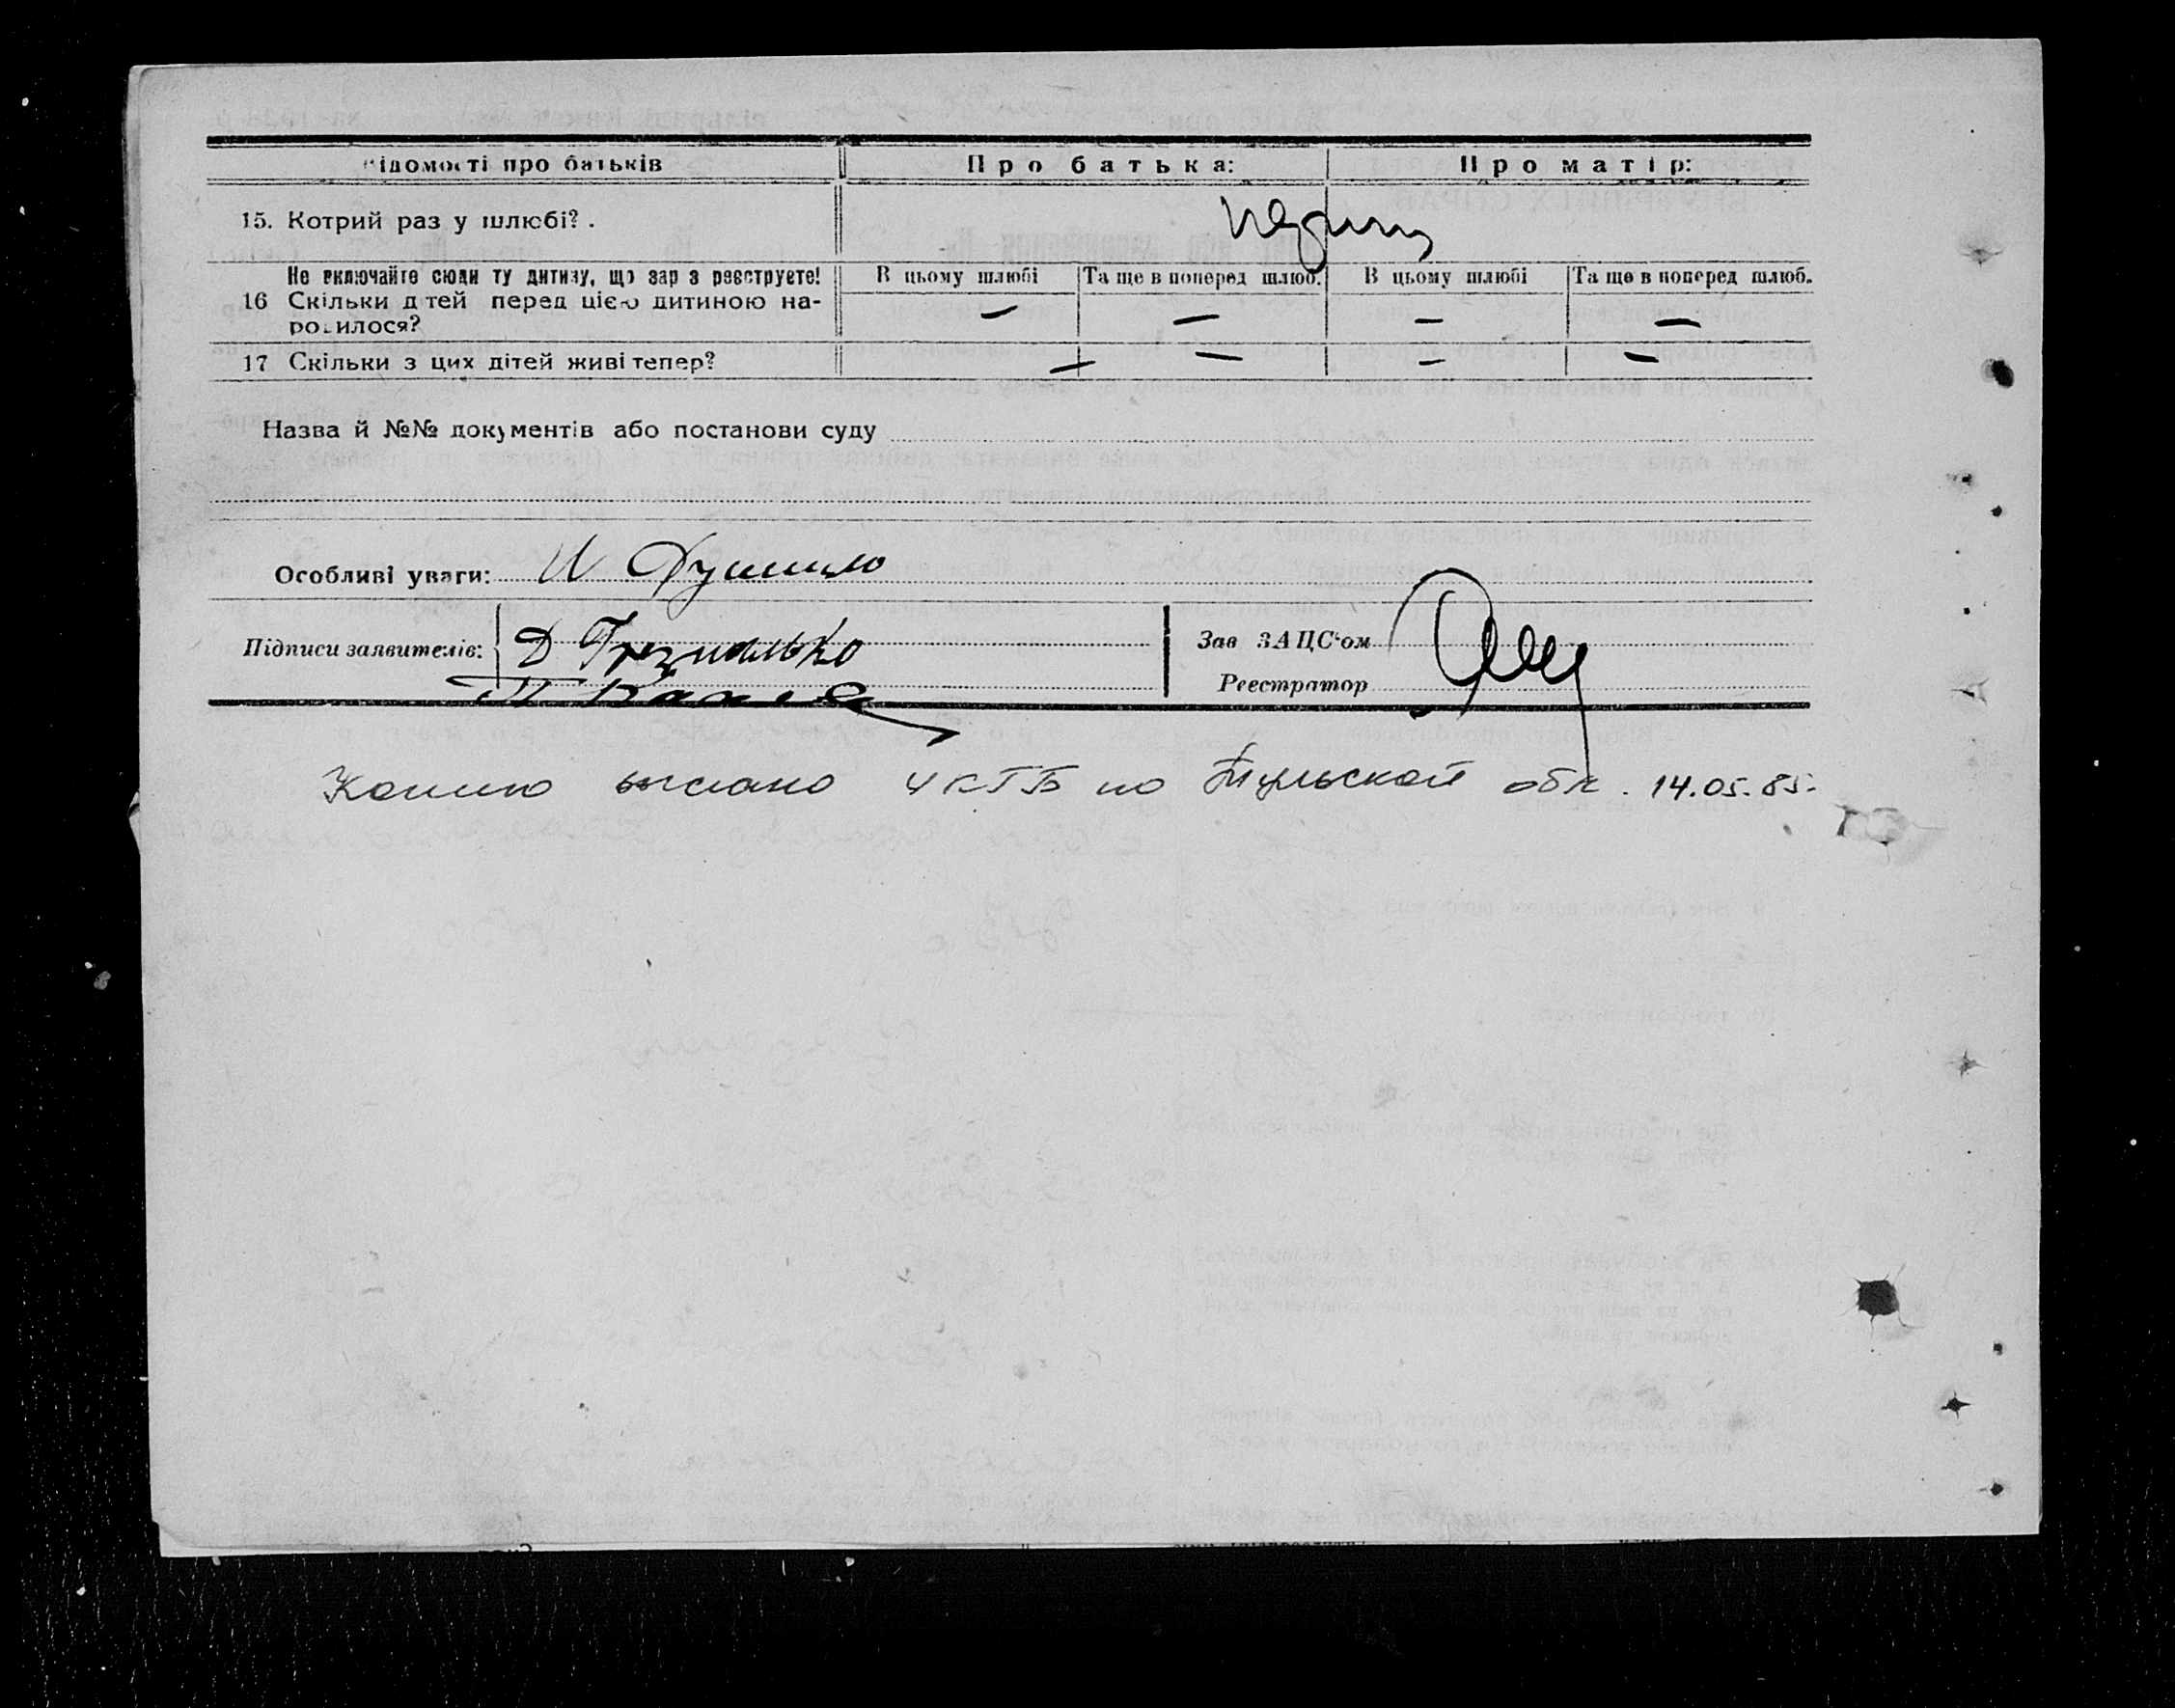 Відомості про батьків Про батька: Про матір:
15. Котрий раз у шлюбі?.
Не включайте сюди ту дитину, що зараз реєструєте! В цьому шлюбі Та ще в поперед шлюб. В цьому шлюбі Та ще в поперед шлюб.
16 Скільки дітей перед цією дитиною на- — — — —
родилося?
17 Скільки з цих дітей живі тепер? — — — —
Назва й №№ документів або постанови суду
Особливі уваги: И
Підписи заявителів: Д Зав ЗАЦС'ом
Реєстратор
Копию выслано УКГБ по Тульской обл. 14.05.85.